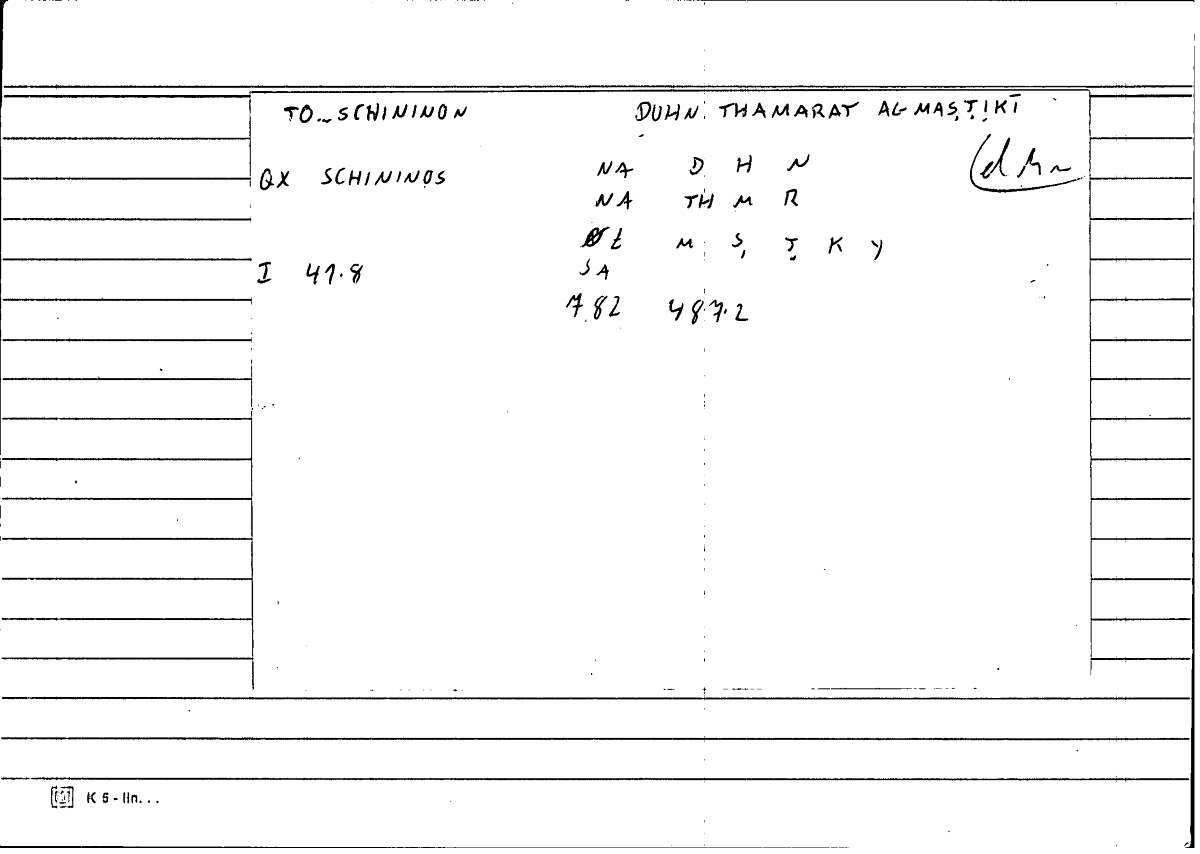 TO_SCHININON DUHN THAMARAT AL-MAṢṬIKĪ
QX SCHININOS NA D H N dhn
NA TH M R
M Ṣ Ṭ K Y
I 41.8 SA
782 487.2
K 5 - lin...